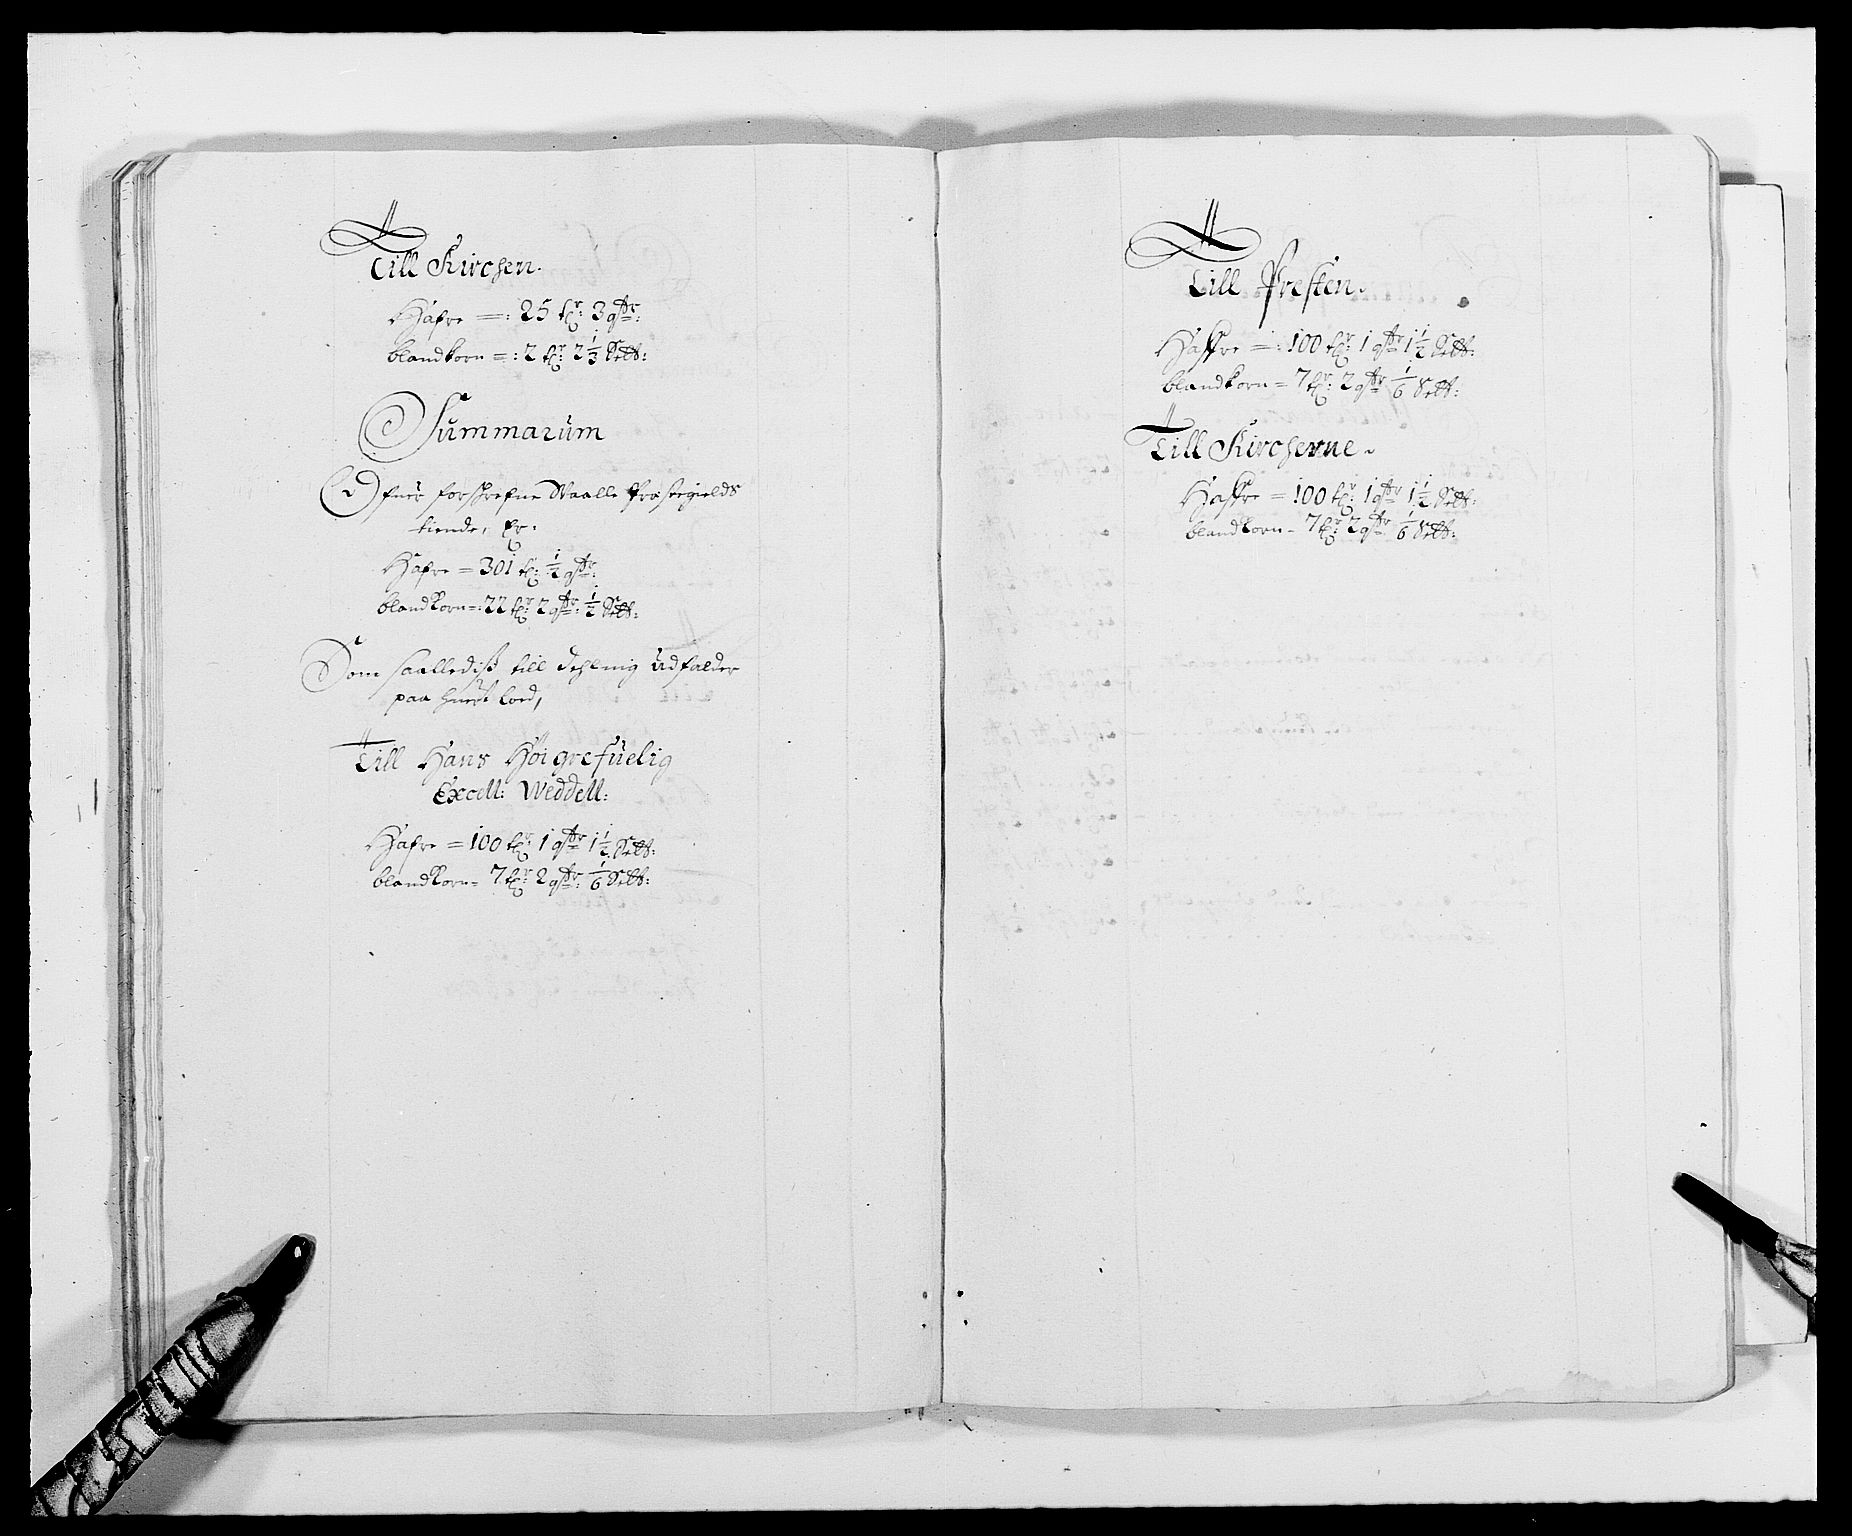 Till Kirchen.
Hafre =: 25 tr: 3 qtr:
blandkorn =: 2 tr: 2 1/3 Sett:
Summarum
Ofuer forschrefne Waalle Præstegields
tiende, Er:
Hafre = 301 t: 1/2 qtr:
blandkorn =: 22 tr: 2 qtr: 1/2 Sett:
Som saalledisz till dehling üdfalder
paa huert loed,
Till Hans Höigrefüelig
Excell: Weddell:
Hafre = 100 tr: 1 qtr 1 1/2 Sett:
blandkorn = 7 tr: 2 qtr: 1/6 Sett:
Till Presten.
Haffre =: 100 tr: 1 qtr 1 1/2 Sett:
blandkorn = 7 tr: 2 qtr 1/6 Sett:
Till Kircherne.
Haffre = 100 tr: 1 qtr 1 1/2 Sett:
blandkorn - 7 tr: 2 qtr: 1/6 Sett: